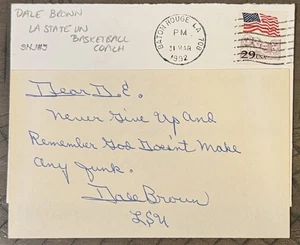 DALE BROWN
LA STATE UN
BASKETBALL
COACH
SNJ#9
BATON ROUGE, LA 708
PM
31 MAR
1992
29 USA
Dear D.E.
Never Give Up And
Remember God Doesn't Make
Any Junk.
Dale Brown
LSU